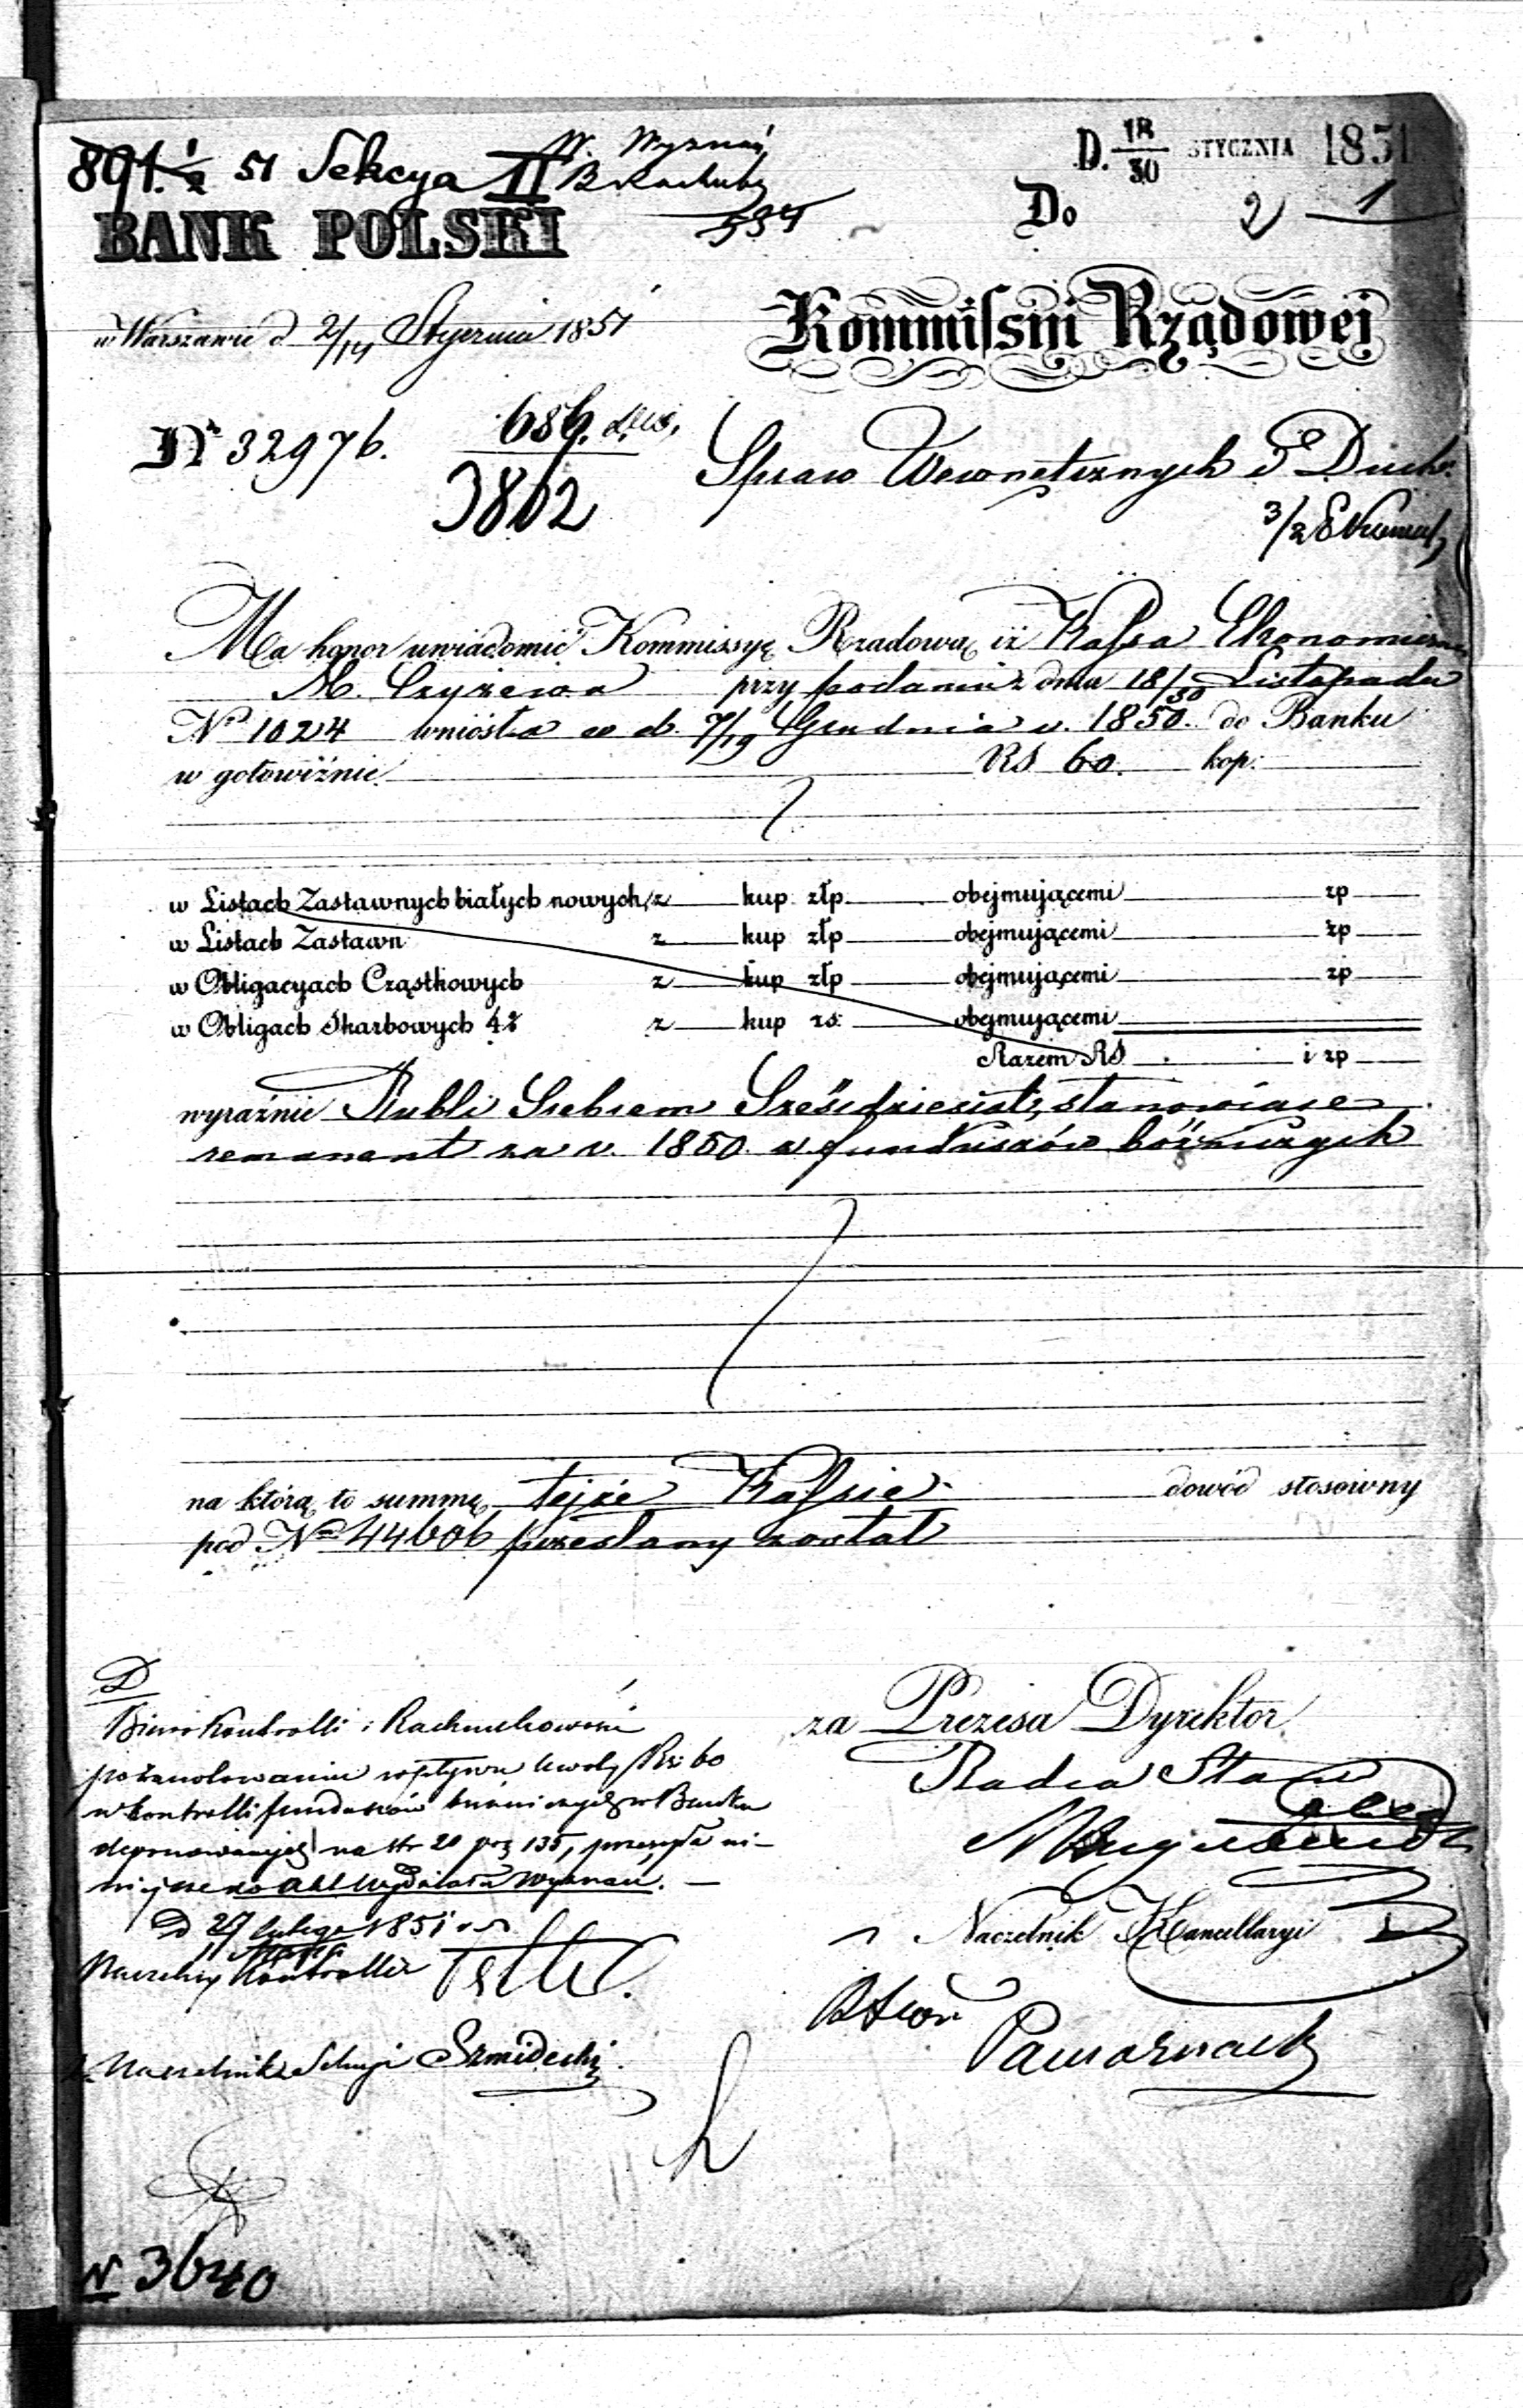 891. 1/2 51 Sekcya II W. Wyznań
B Rachuby
534
D. 18/30 STYCZNIA 1851
BANK POLSKI
Do
2 1
w Warszawie d 2/14 Stycznia 1851
Kommissyi Rządowej
Nr 32976.
686.
3802
Spraw Wewnetrznych i Duch:
3/2
Ma honor uwiadomić Kommissyę Rządową iż Kassa Ekonomiczna
M. Czyżewa przy podaniu z dnia 18/30 Listopada
No 1024 wniosła w d. 7/19 Grudnia r. 1850. do Banku
w gotowiźnie RS 60. kop:
w Listach Zastawnych białych nowych, z kup złp obejmującemi zp
w Listach Zastawn z kup złp obejmującemi zp
w Obligacyach Cząstkowych z kup złp obejmującemi zp
w Obligach Skarbowych 4% z kup rs: obejmującemi
Razem RS i zp
wyraźnie Rubli Srebrem Sześćdziesiąt, stanowiące
remanent za r. 1850. z funduszów bóżniczych
na którą to summę tejże Kassie dowód stosowny
pod No 44606 przesłany został
D
Biuro Kontrolli i Rachunkowości
po zanotowaniu wpływu kwoty Rs. 60
w kontrolli funduszów bóżniczych w Banku
deponowanych na str 20 poz 135, przesyła ni-
niejsze do Akt Wydziału Wyznań. —
D 27 Lutego 1851 r.
11 Marca
Naczelnik Kontrolli
Naczelnik Sekcyi Szmidecki
za Prezesa Dyrektor
Radca Stanu
Naczelnik Kancellaryi
N 3640